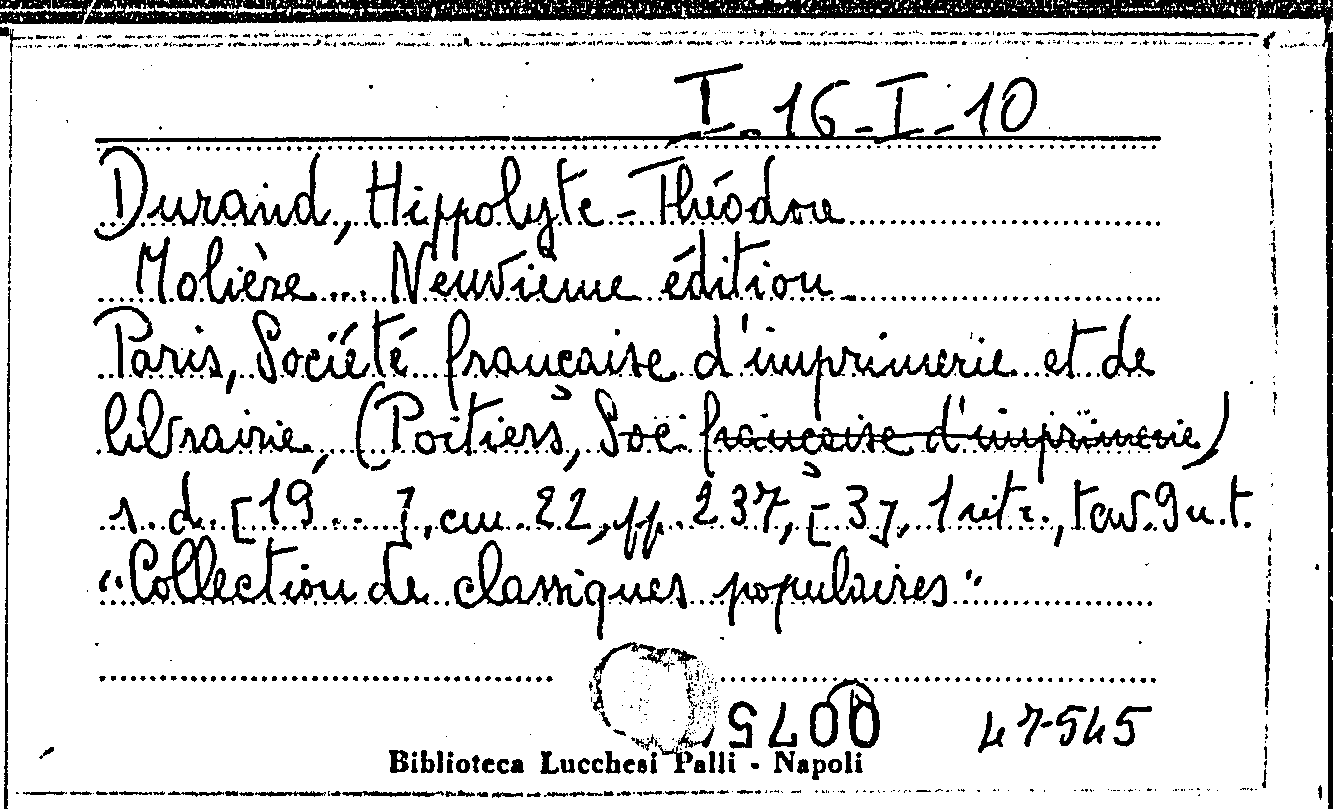 I. 16-I-10
Durand, Hippolyte-Théodore
Molière... Neuvième édition
Paris, Société française d'imprimerie et de
librairie, (Poitiers, Soc. française d'imprimerie)
s. d. [19...], cm. 22, pp. 237, [3], 1 ritr., tav. 9 n.t.
"Collection de classiques populaires"
0075
47545
Biblioteca Lucchesi Palli - Napoli